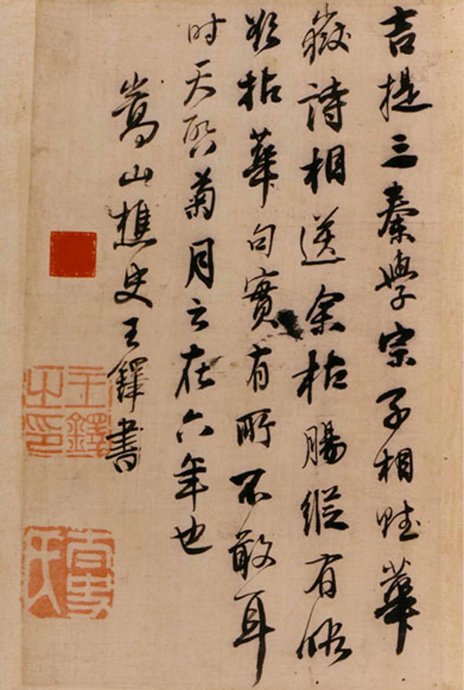 吉提三秦學宗子相賦華
嶽詩相送余枯腸縱有
欲拈華句實有所不敢耳
时天啟菊月之在六年也
嵩山樵史王鐸書
王鐸之印